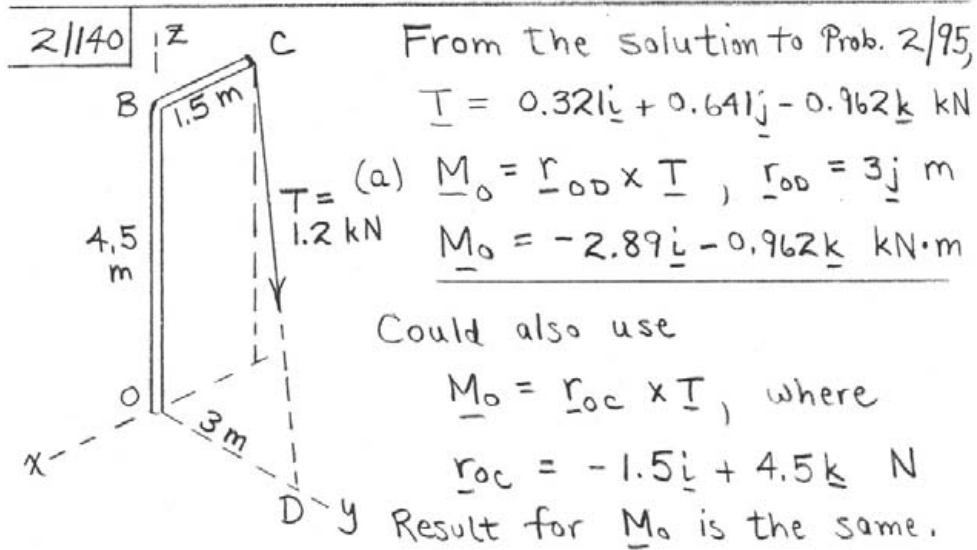 2/140
z
C
B
1.5 m
T =
1.2 kN
4.5
m
O
3 m
x
D
y
From the solution to Prob. 2/95,
T = 0.321i + 0.641j - 0.962k kN
(a) Mo = rOD x T , rOD = 3j m
Mo = -2.89i - 0.962k kN·m
Could also use
Mo = rOC x T, where
rOC = -1.5i + 4.5k N
Result for Mo is the same.